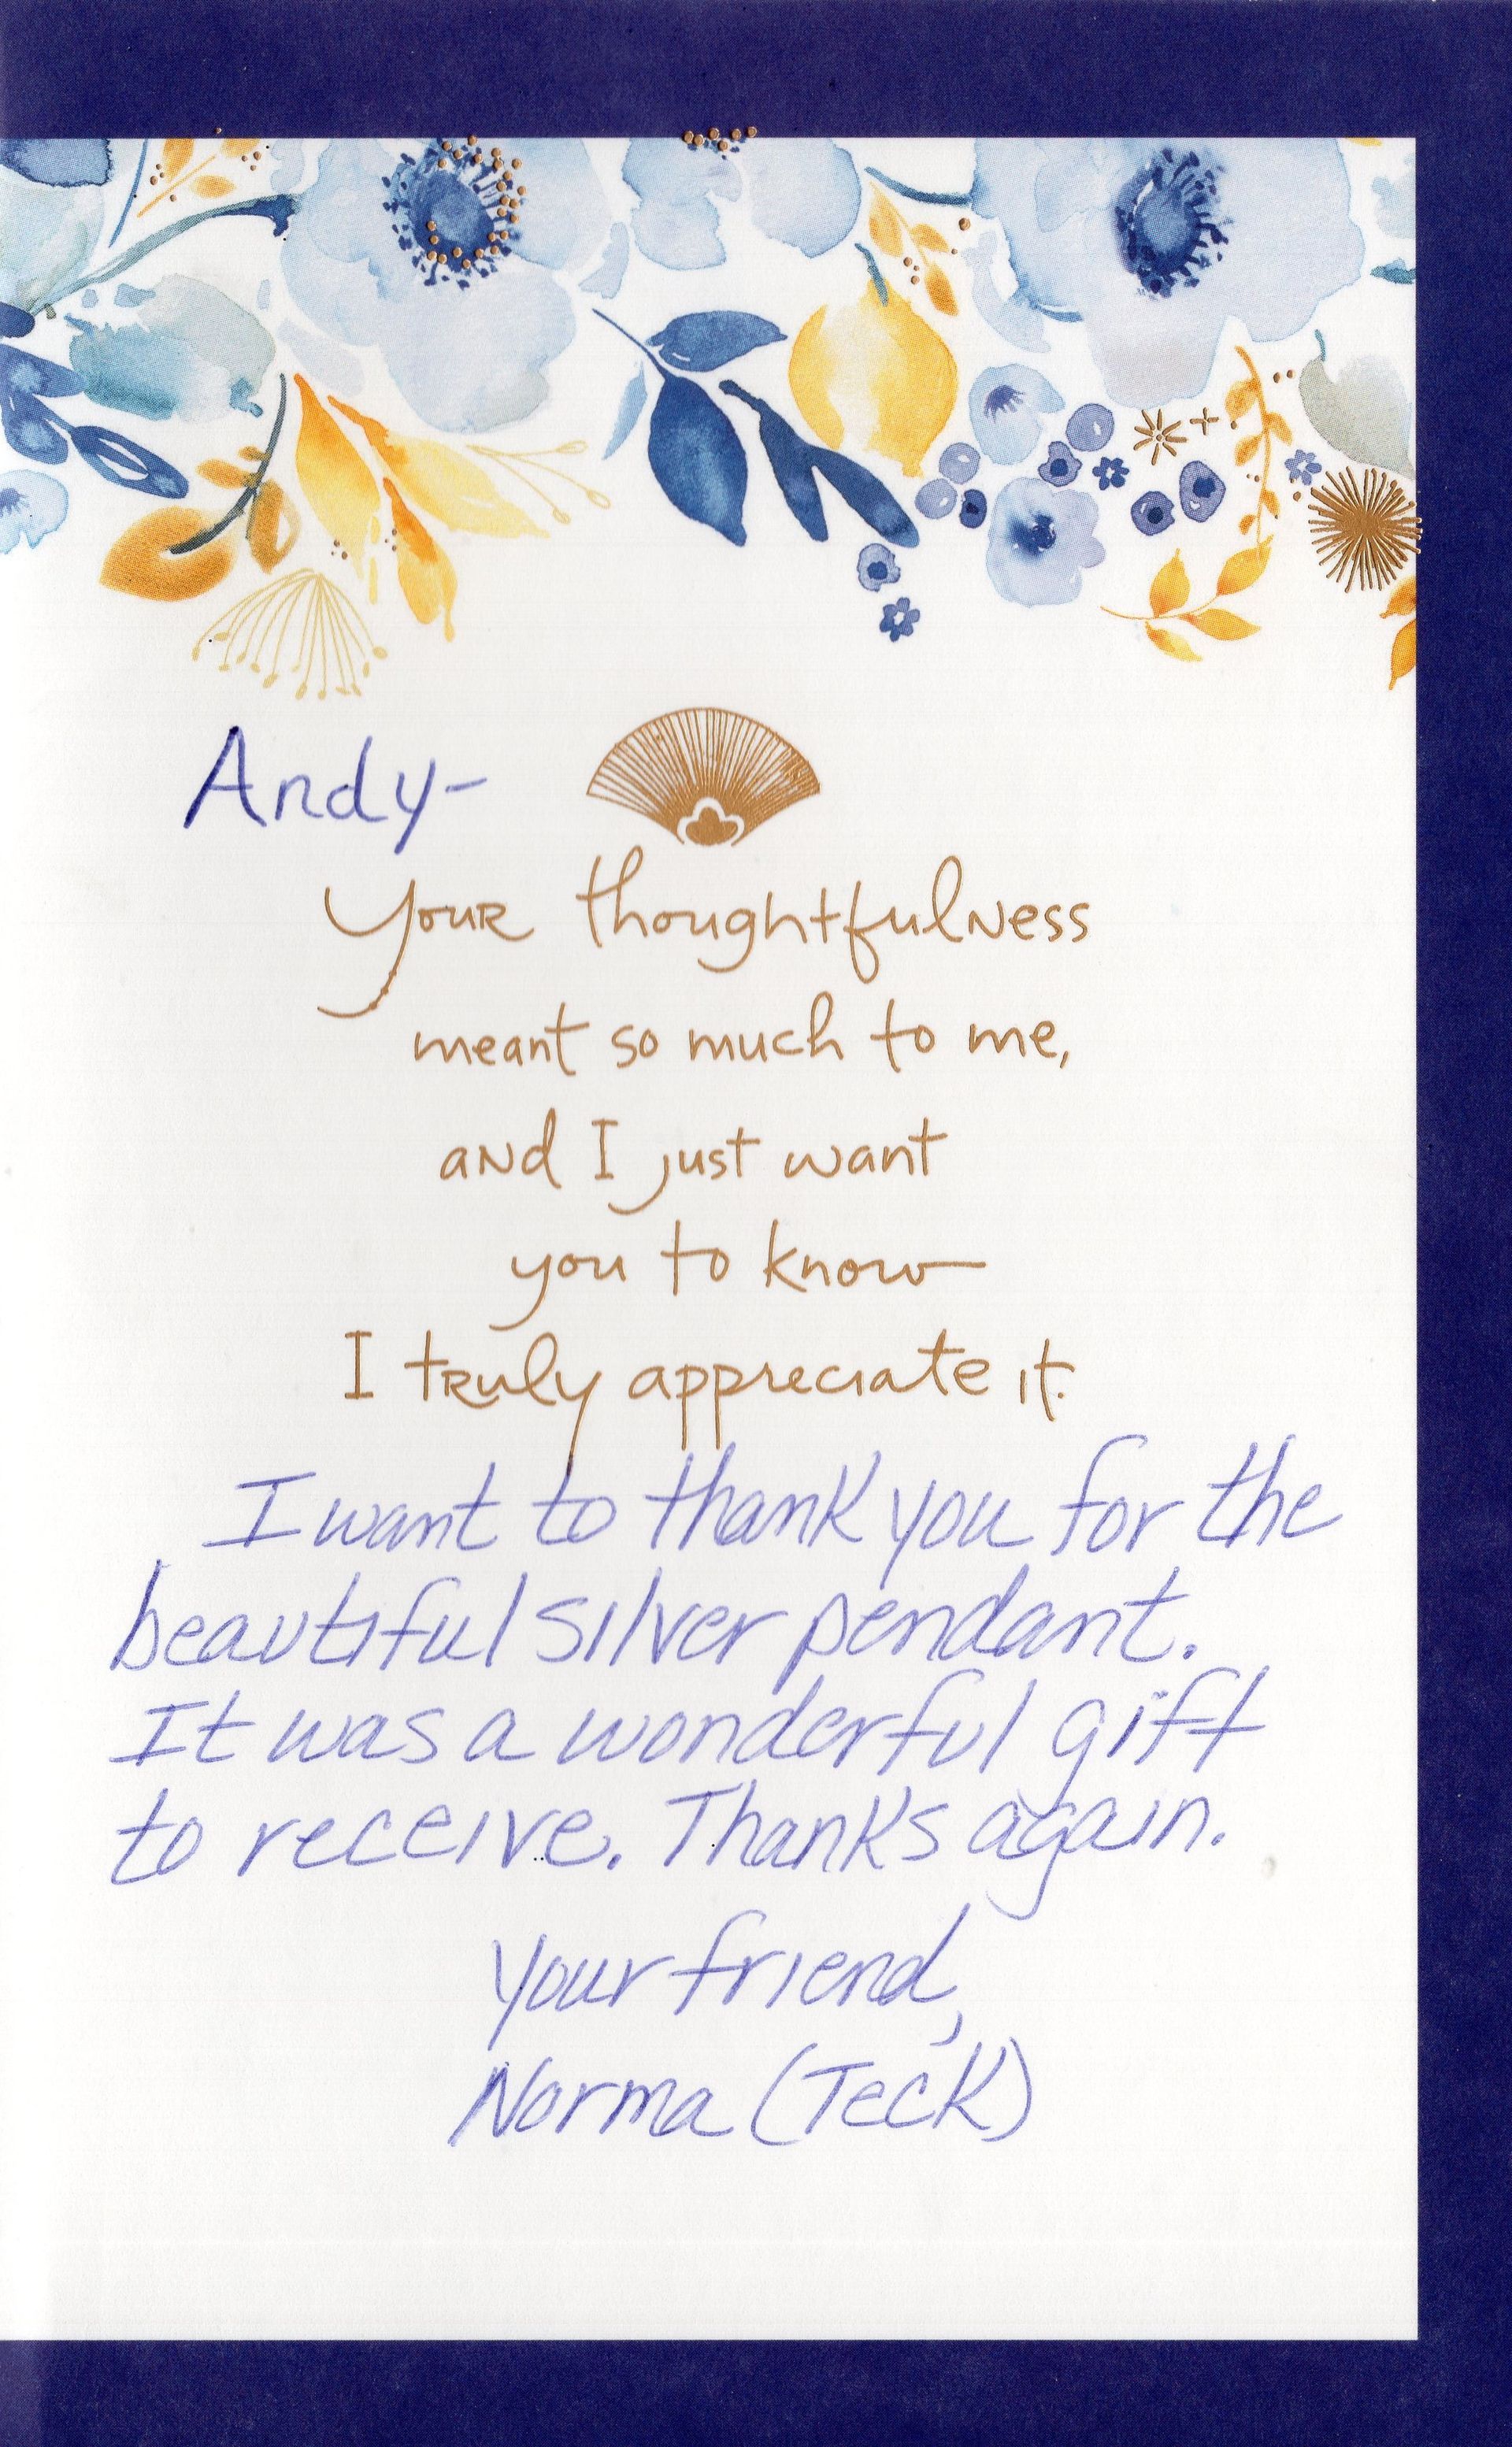 Andy-
Your thoughtfulness
meant so much to me,
and I just want
you to know
I truly appreciate it.
I want to thank you for the
beautiful silver pendant.
It was a wonderful gift
to receive. Thanks again.
Your friend,
Norma (Teck)